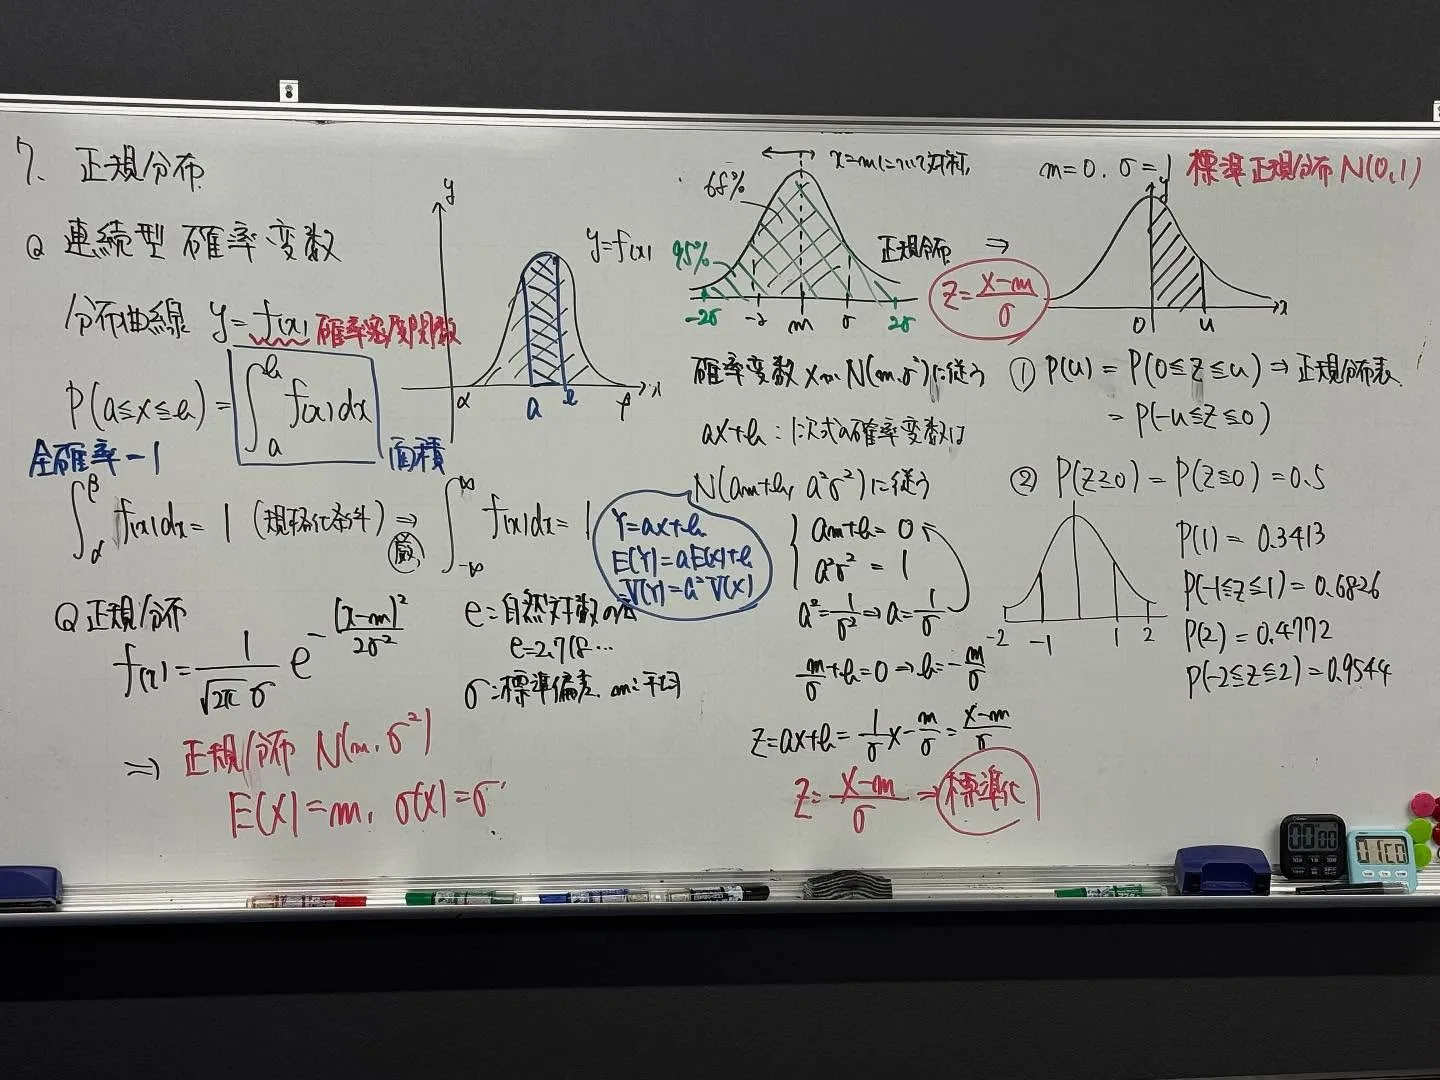 7. 正規分布
Q 連続型確率変数
分布曲線 y=f(x) 確率密度関数
P(a≦x≦b)=∫_a^b f(x)dx
全確率=1 面積
∫_α^β f(x)dx=1 (規格化条件)⇒ ∫_{-∞}^{∞} f(x)dx=1
厳
y
y=f(x)
α a b β x
Q 正規分布
f(x)=1/(√2π σ) e^{-(x-m)^2/2σ^2}
e=自然対数の底
e=2.718…
σ:標準偏差, m:平均
⇒ 正規分布 N(m, σ^2)
E(X)=m, σ(X)=σ
x=mについて対称
68%
95%
正規分布 ⇒
-2σ -σ m σ 2σ
Z=(X-m)/σ
確率変数Xが N(m, σ^2)に従う
aX+b : 1次式の確率変数は
N(am+b, a^2σ^2)に従う
Y=aX+b
E(Y)=aE(X)+b
V(Y)=a^2V(X)
am+b=0
a^2σ^2=1
a^2=1/σ^2⇒a=1/σ
m/σ+b=0→b=-m/σ
Z=aX+b=1/σ X-m/σ=(X-m)/σ
Z=(X-m)/σ ⇒標準化
m=0, σ=1 標準正規分布 N(0,1)
y
0 u x
① P(u)=P(0≦Z≦u)⇒正規分布表
=P(-u≦Z≦0)
② P(Z≧0)=P(Z≦0)=0.5
-2 -1 1 2
P(1)=0.3413
P(-1≦Z≦1)=0.6826
P(2)=0.4772
P(-2≦Z≦2)=0.9544